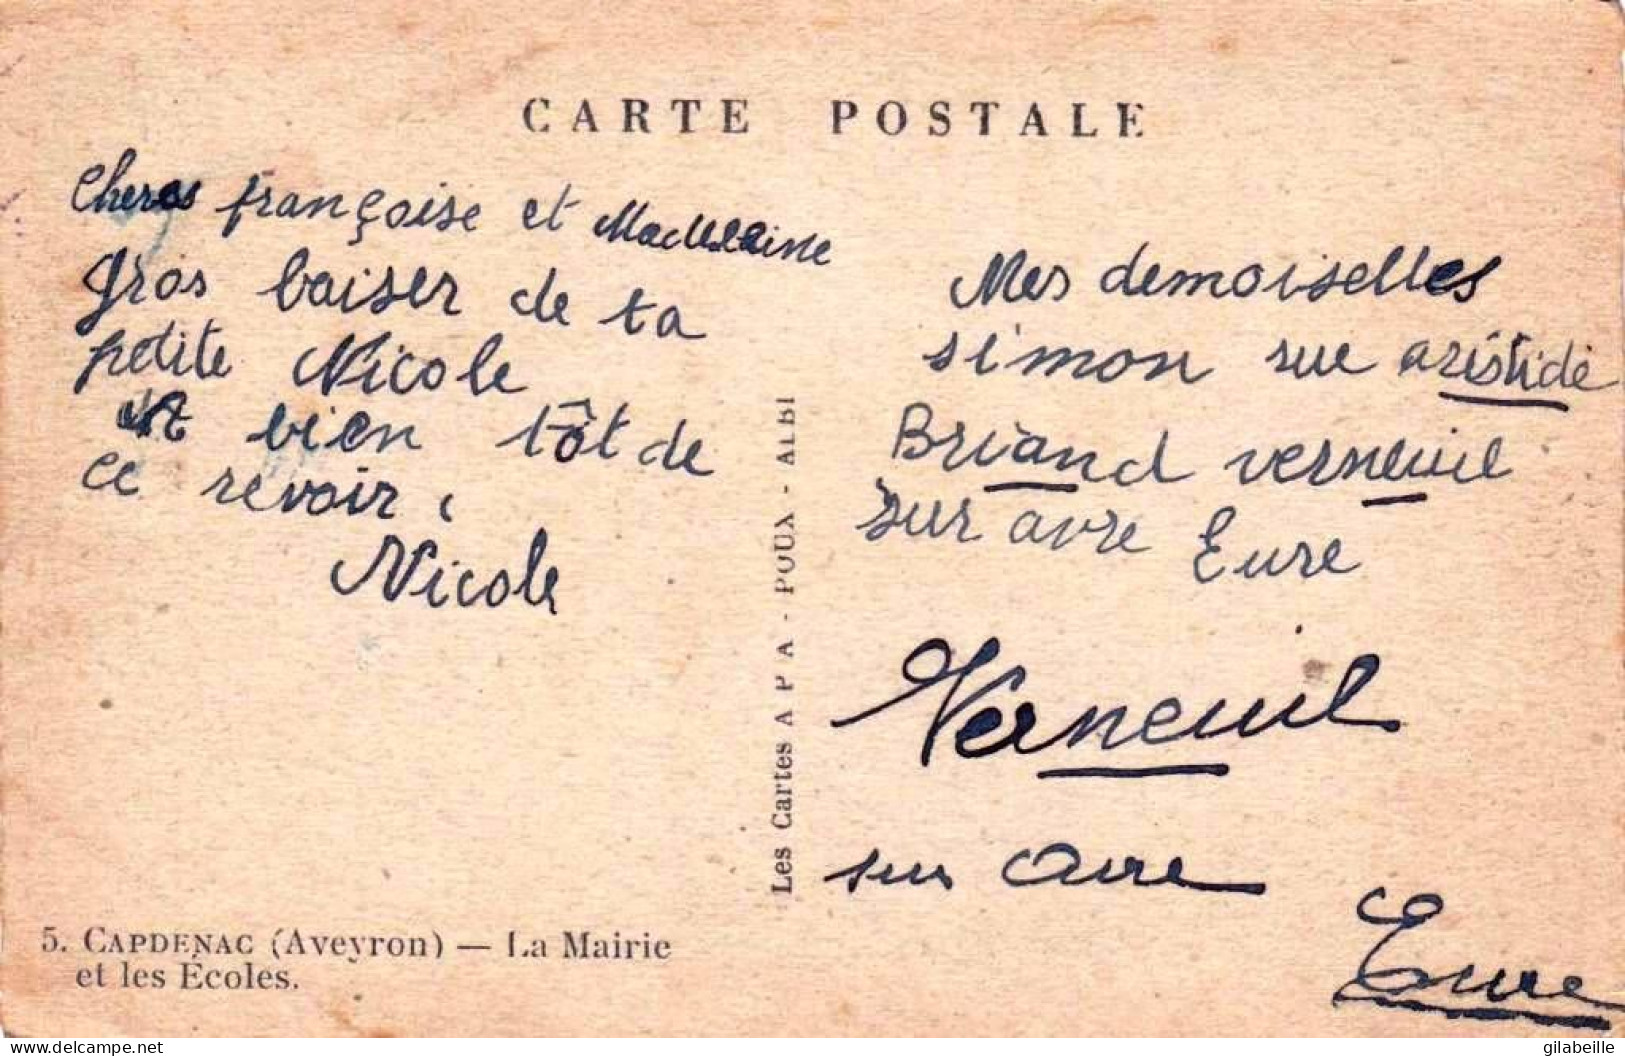 CARTE POSTALE
Cheres françoise et Madeleine
gros baiser de ta
petite Nicole
et bien tôt de
ce revoir.
Nicole
Mes demoiselles
simon rue aristide
Briand verneuil
sur avre Eure
Verneuil
sur avre
Eure
Les Cartes A P A - POUX - ALBI
5. CAPDENAC (Aveyron) — La Mairie
et les Écoles.
delcampe.net
gilabeille